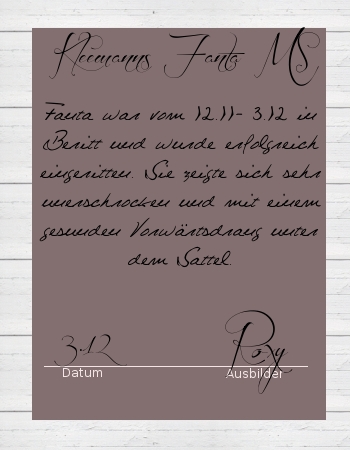 Kleemanns Fanta MS
Fanta war vom 12.11- 3.12 in
Beritt und wurde erfolgreich
eingeritten. Sie zeigte sich sehr
unerschrocken und mit einem
gesunden Vorwärtsdrang unter
dem Sattel.
3.12 Roxy
Datum Ausbilder